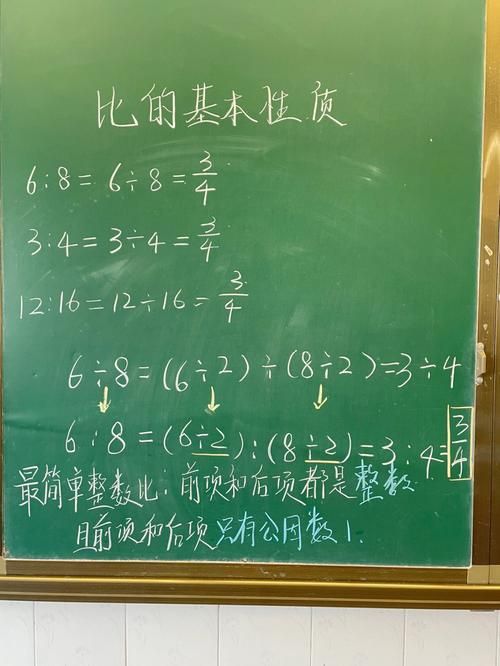 比的基本性质
6:8=6÷8=3/4
3:4=3÷4=3/4
12:16=12÷16=3/4
6÷8=(6÷2)÷(8÷2)=3÷4
6:8=(6÷2):(8÷2)=3:4=3/4
最简单整数比:前项和后项都是整数
且前项和后项只有公因数1.